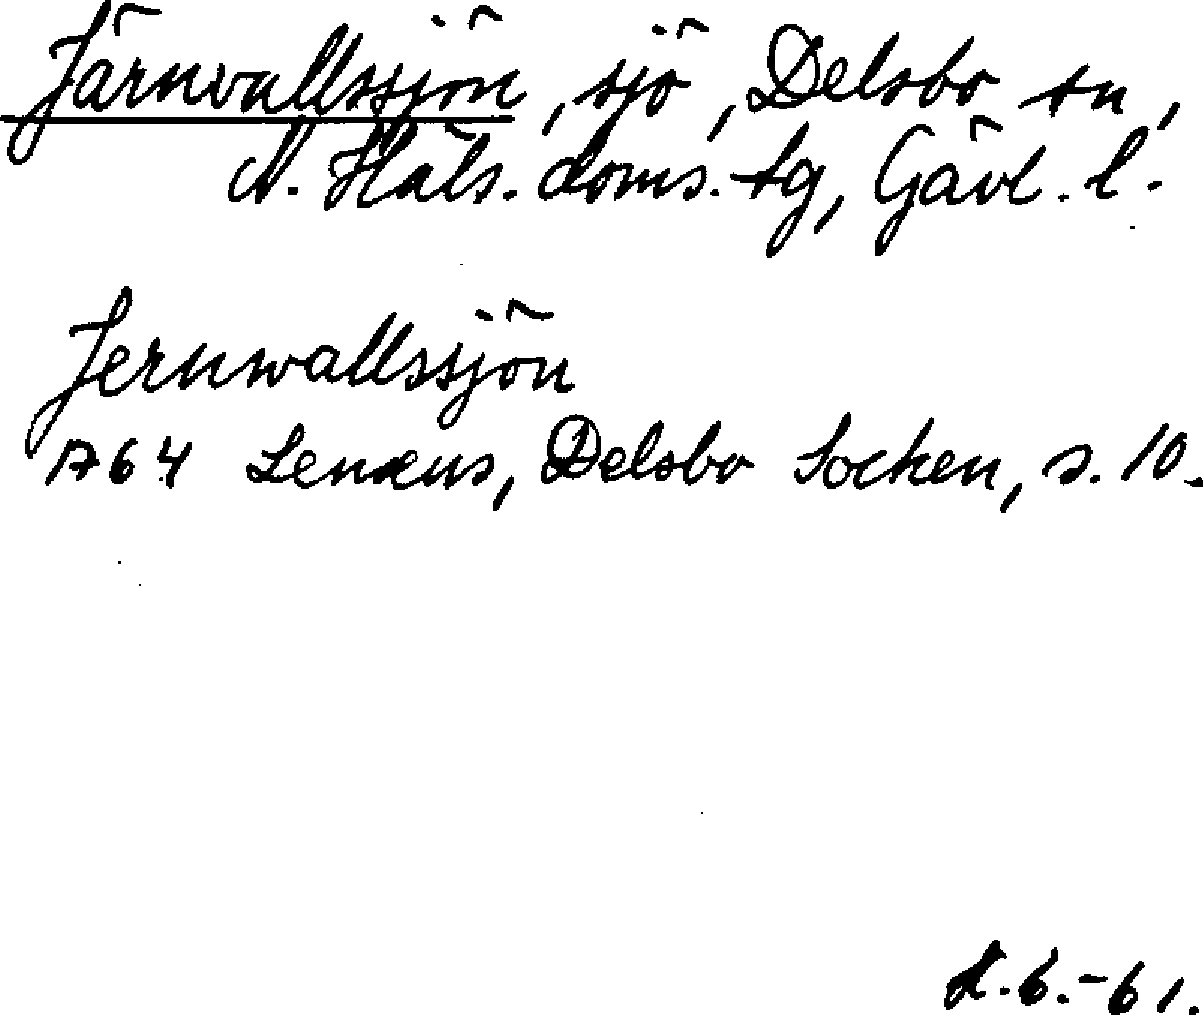 Järnvallssjön, sjö, Delsbo sn,
N. Häls. doms. tg, Gävl. l.
Jernwallssjön
1764 Lenæus, Delsbo Socken, s. 10.